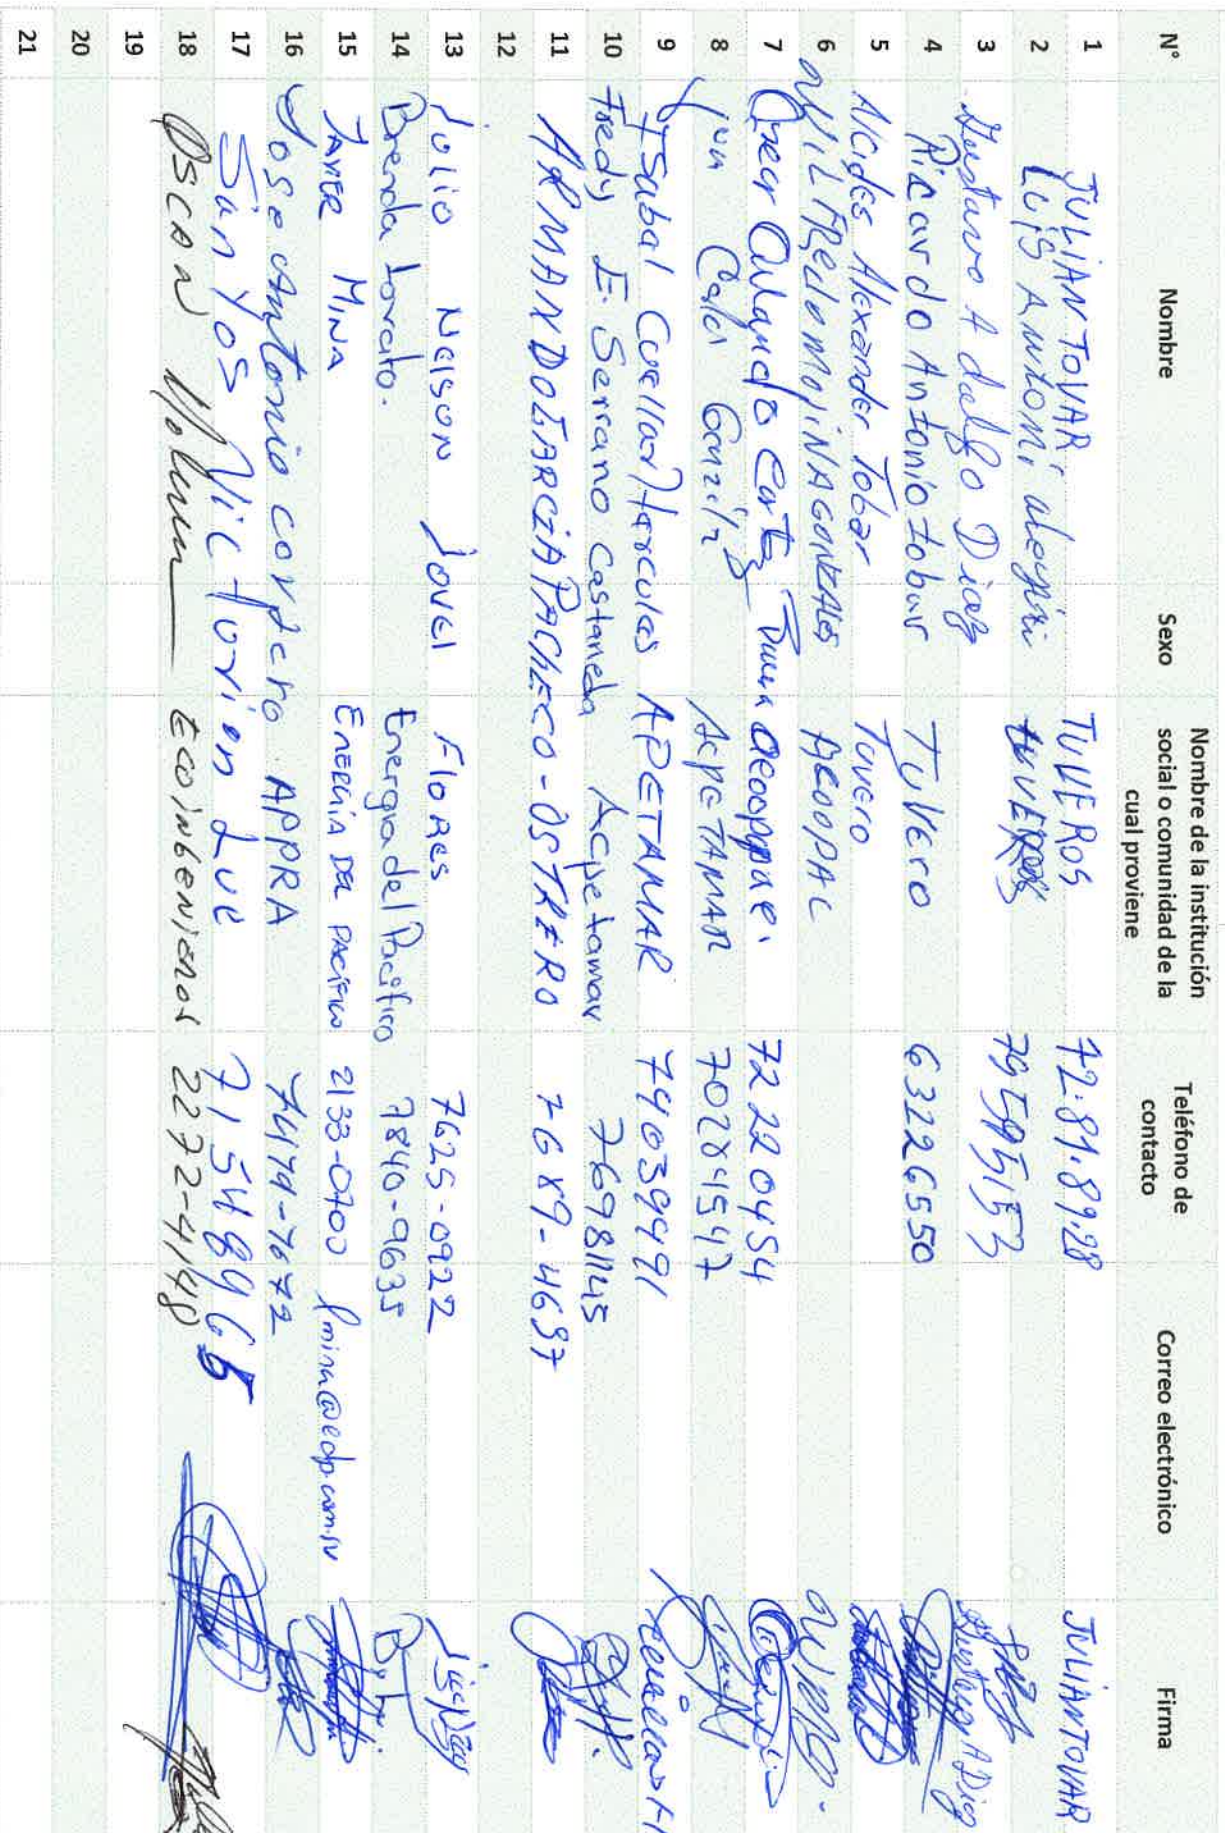 N° Nombre Sexo Nombre de la institución social o comunidad de la cual proviene Teléfono de contacto Correo electrónico Firma
1 JULIAN TOVAR. TUVEROS 72.81.89.28 JULIANTOVAR
2 LUIS Antoni
3 Gustavo Adolfo Diaz 79595153 Gustavo A Diaz
4 Ricardo Antonio tobar TuVero 63226550
5 Alcides Alexander Tobar Tuvero
6 WILFREdo moliNA GONZALES ACOOPAC
7 Oscar Orlando Cortez 72220454
8 Juan Carlos AcpETAMAR 70284547
9 Isabal Cuellar Harculas APETAMAR 74039491
10 Fredy E. Serrano Castaneda Acpetamar 76981145
11 ARMANDO GARCIA PACHECO - OSTRERO 7689-4697
12
13 Julio Nelson Jovel Flores 7625-0922
14 Brenda Lovato. Energia del Pacifico 7840-9635
15 JAVIER MINA ENERGÍA DEL PACÍFICO 2133-0700 jmina@edp.com.sv
16 Jose Antonio cordero APPRA 7474-7672
17 San Yos Victorion Lue 71548965
18 Oscar Molina Ecoingenieros 2272-4148
19
20
21